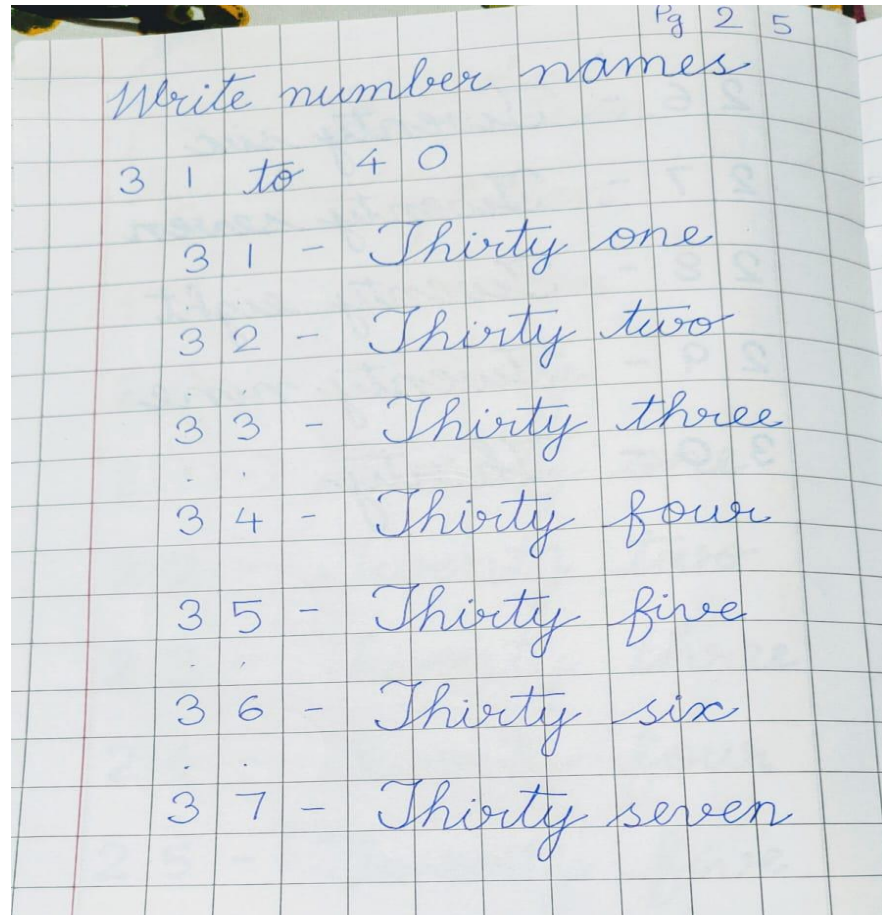 Pg 25
Write number names
31 to 40
31 - Thirty one
32 - Thirty two
33 - Thirty three
34 - Thirty four
35 - Thirty five
36 - Thirty six
37 - Thirty seven